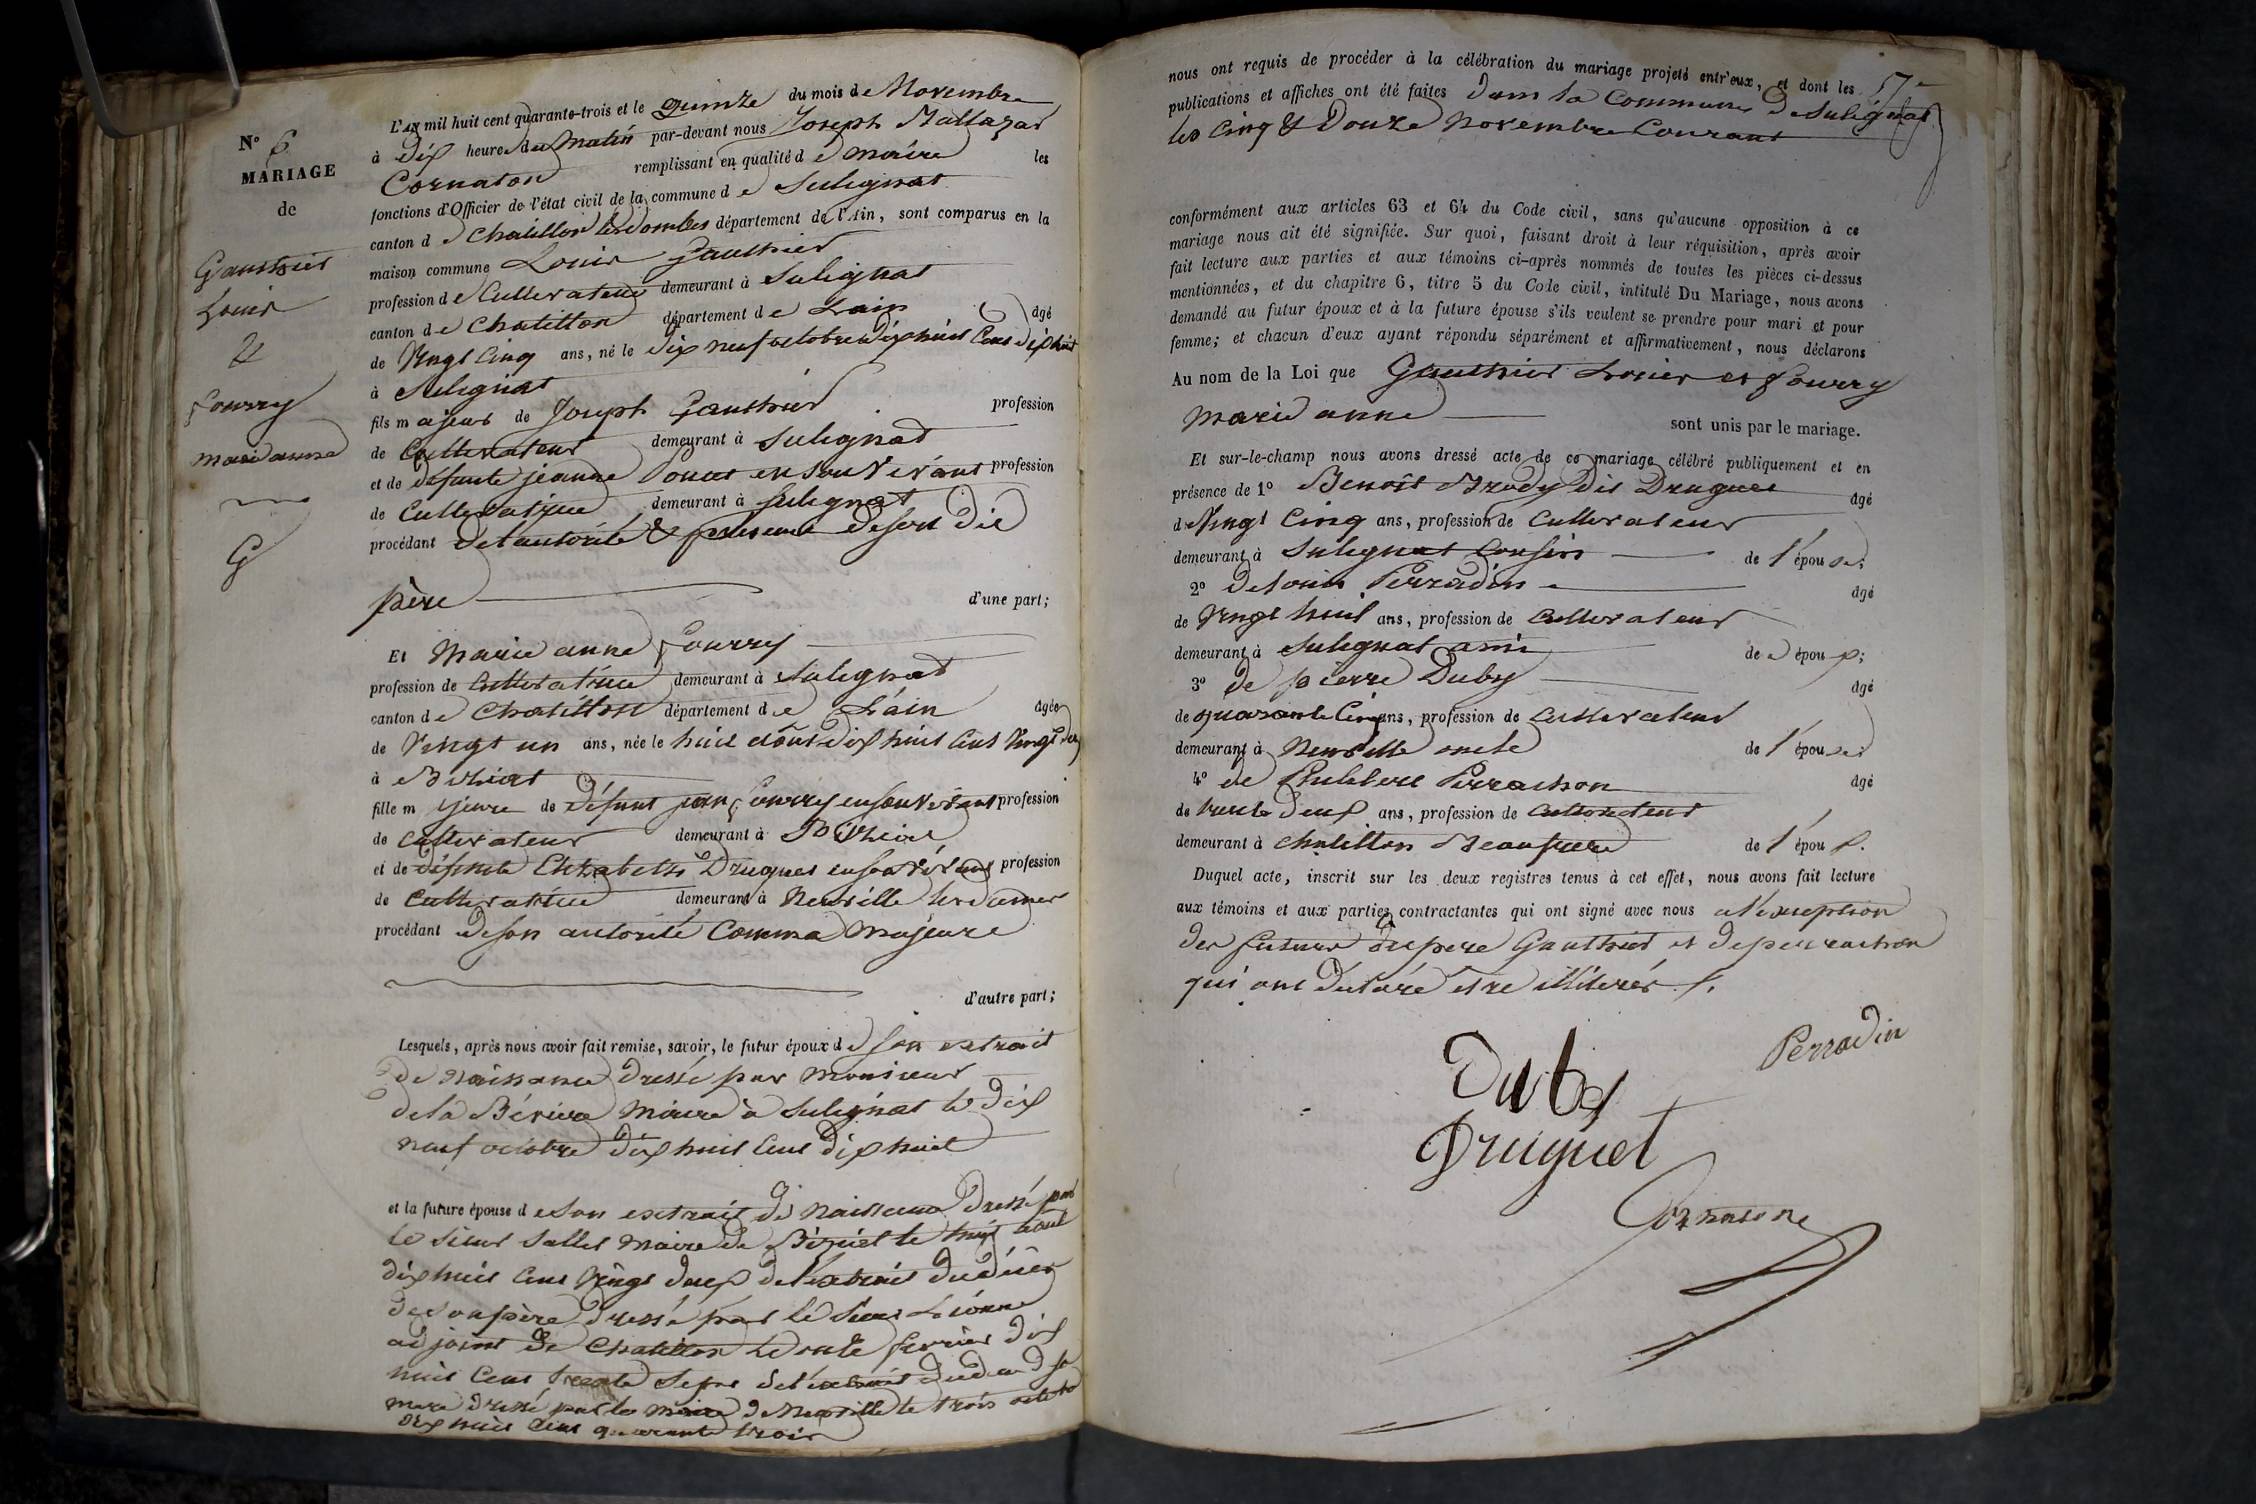 N° 6
MARIAGE
de
Gauthier
Louis
&
Fourry
marie anne
G
L'an mil huit cent quarante-trois et le quinze du mois de Novembre
à dix heures du matin par-devant nous Joseph Baltazar
Cornaton remplissant en qualité de maire les
fonctions d'Officier de l'état civil de la commune de Sulignat
canton de Chatillon les dombes département de l'Ain, sont comparus en la
maison commune Louis Gauthier
profession de Cultivateur demeurant à Sulignat
canton de Chatillon département de Lain âgé
de Vingt Cinq ans, né le dix neuf octobre dix huit Cent dix huit
à Sulignat
fils majeur de Joseph Gauthier profession
de Cultivateur demeurant à Sulignat
et de défunte jeanne en son vivant profession
de Cultivatrice demeurant à Sulignat
procédant de l'autorité & présence de son dit
père d'une part;
Et Marie anne Fourry
profession de Cultivatrice demeurant à Sulignat
canton de Chatillon département de Lain âgée
de Vingt un ans, née le huit août dix huit Cent Vingt deux
à Biziat
fille majeure de défunt jean Fourry en son vivant profession
de Cultivateur demeurant à Biziat
et de défunte Elizabeth Druguet en son vivant profession
de Cultivatrice demeurant à Neuville les dames
procédant de son autorité Comme Majeure
d'autre part;
Lesquels, après nous avoir fait remise, savoir, le futur époux de son extrait
de Naissance dressé par Monsieur
dela Bévière Maire à Sulignat le dix
neuf octobre dix huit Cent dix huit
et la future épouse de son extrait de Naissance dressé par
le sieur Sallet Maire de Biziat le huit août
dix huit Cent Vingt deux de l'extrait du décès
de son père dressé par le sieur
adjoint de Chatillon le onze février dix
huit Cent trente sept de l'extrait du décès de sa
mère dressé par le Maire de Neuville le trois octobre
dix huit Cent quarante trois
nous ont requis de procéder à la célébration du mariage projeté entr'eux, et dont les
publications et affiches ont été faites dans la Commune de Sulignat
les Cinq & Douze Novembre Courant
conformément aux articles 63 et 64 du Code civil, sans qu'aucune opposition à ce
mariage nous ait été signifiée. Sur quoi, faisant droit à leur réquisition, après avoir
fait lecture aux parties et aux témoins ci-après nommés de toutes les pièces ci-dessus
mentionnées, et du chapitre 6, titre 5 du Code civil, intitulé Du Mariage, nous avons
demandé au futur époux et à la future épouse s'ils veulent se prendre pour mari et pour
femme; et chacun d'eux ayant répondu séparément et affirmativement, nous déclarons
Au nom de la Loi que Gauthier Louis et Fourry
Marie anne sont unis par le mariage.
Et sur-le-champ nous avons dressé acte de ce mariage célébré publiquement et en
présence de 1° Benoît dit Druguet âgé
de Vingt Cinq ans, profession de Cultivateur
demeurant à Sulignat Cousin de l'épouse;
2° de Louis Perradin âgé
de Vingt huit ans, profession de Cultivateur
demeurant à Sulignat ami de épou
3° de pierre Duby âgé
de quarante Cinq ans, profession de Cultivateur
demeurant à Neuville oncle de l'épouse;
4° de Philibert Perrachon âgé
de trente deux ans, profession de Cultivateur
demeurant à Chatillon Beaufrère de l'époux.
Duquel acte, inscrit sur les deux registres tenus à cet effet, nous avons fait lecture
aux témoins et aux parties contractantes qui ont signé avec nous à l'exception
des futurs du père Gauthier et de perrachon
qui ont déclaré être illitérés.
Perradin
Duby
Druguet
Cornaton